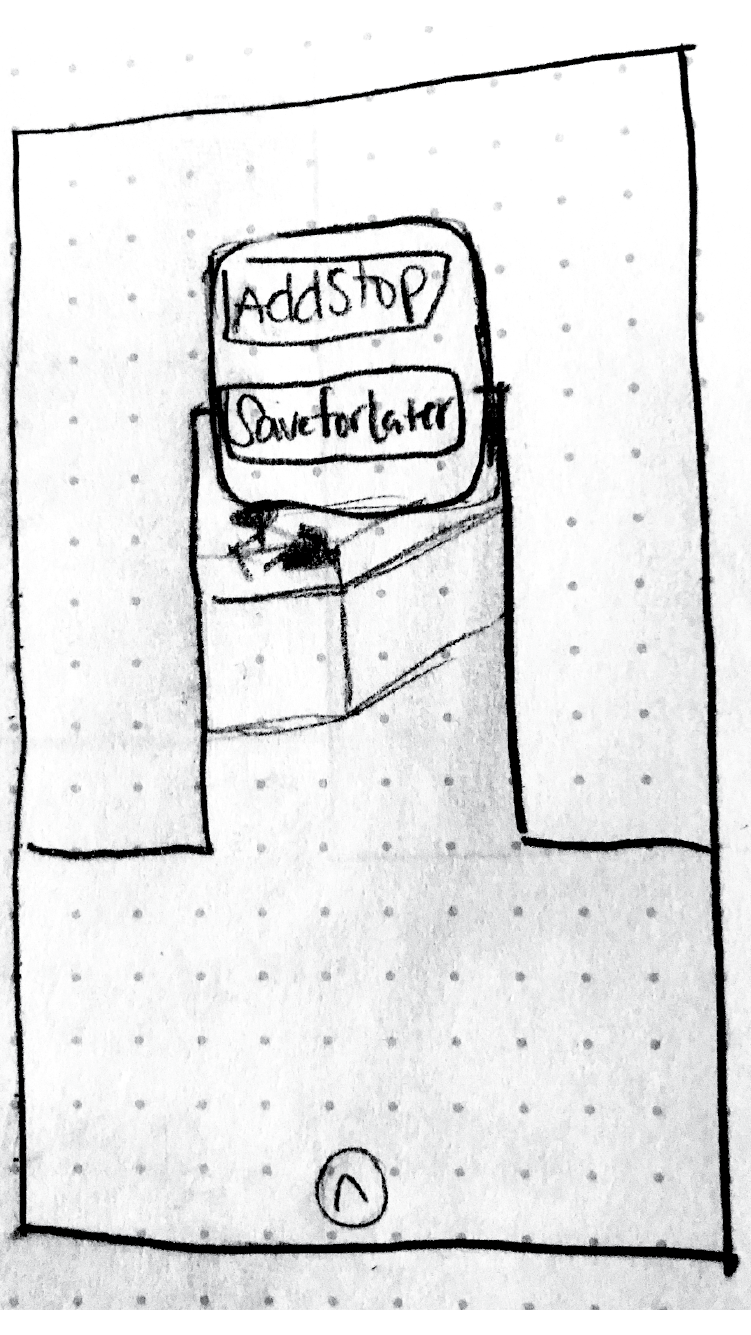 AddStop
Save for Later